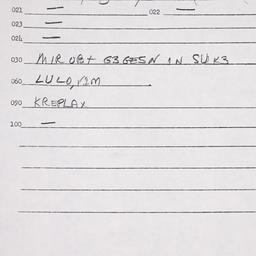 021 — 022 —
023 —
024 —
030 MIR OBT G3GESN IN SUK3
060 LULO,RIM
090 KREPLAX
100 —